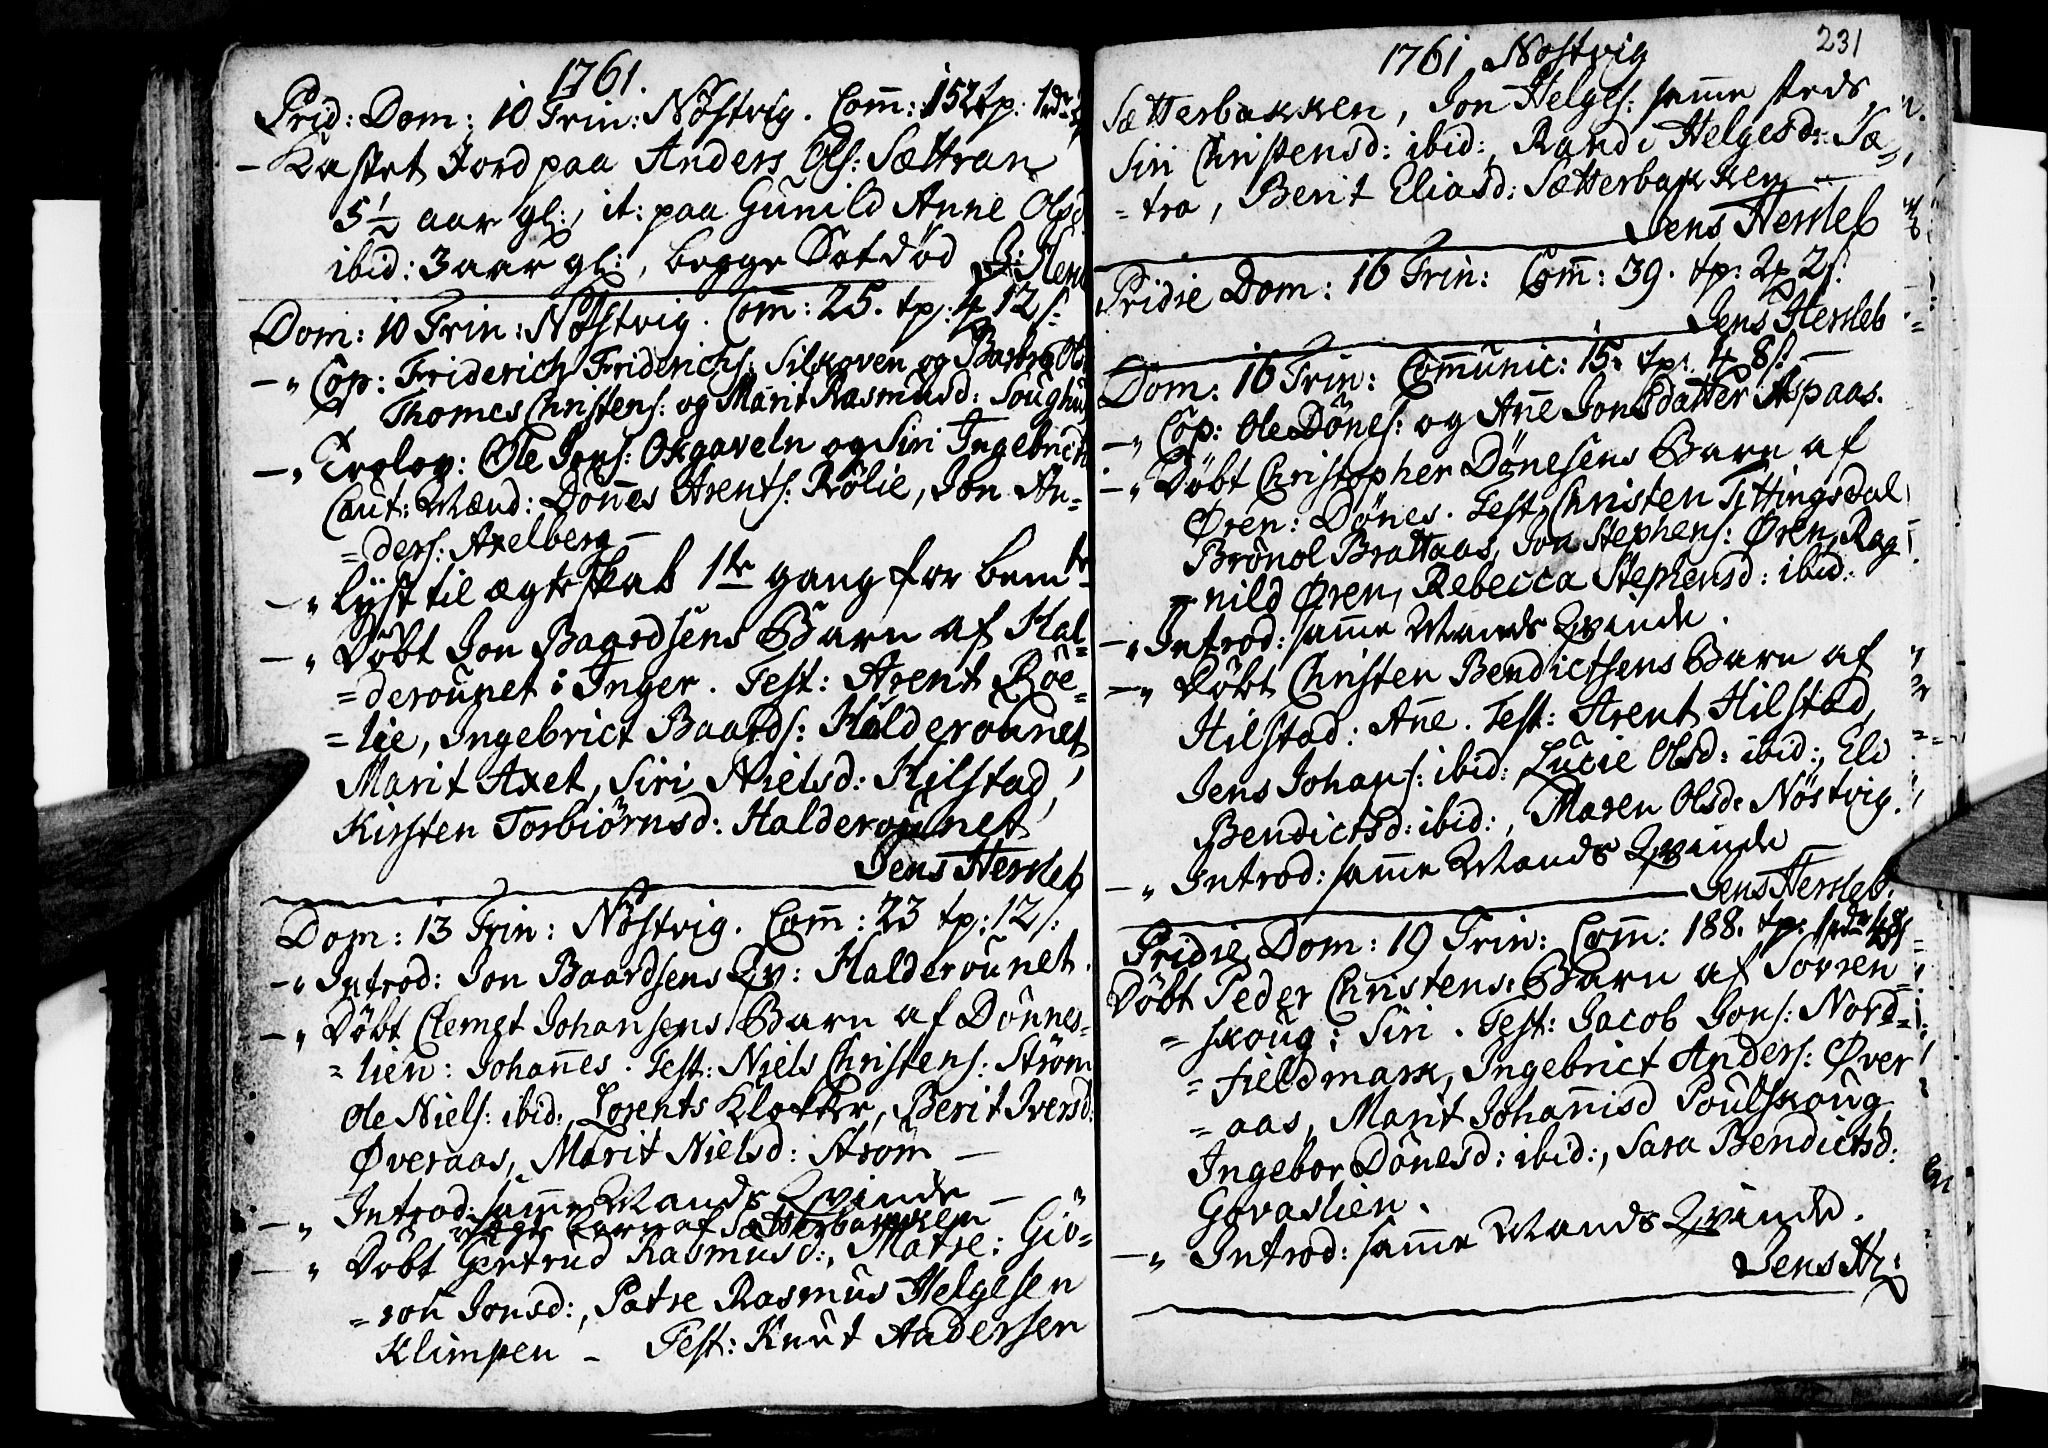 1761.
Prid: Dom: 10 Trin: Nöstvig. Com̄: 152 tp: 1rdr
– Kastet Jord paa Anders Ols: Sættran
5½ aar gl:, it: paa Gunild Anne Olsd
ibid: 3 aar gl:, begge Sotdöd J: Hers
Dom: 10 Trin: Nöstvig. Com̄: 25. tp: 4 12 s:
–" Cop: Friderich Friderichs: Silkoven og Barbro Ols
Thomes Christens: og Marit Rasmusd: Soughus
–" Trolov: Ole Jons: Oxgaveln og Siri Ingebrictsd
Caut: Mænd: Don̄es Arents: Rölie, Jon An-
=ders: Axelberg –
–" lyst til ægteskab 1te gang for bemte
–" Döbt Jon Baardsens Barn af Hal-
=derounet: Inger. Test: Arent Röe-
=lie, Ingebrict Baards: Halderounet,
Marit Axet, Siri Nielsd: Hilstad,
Kirsten Torbiörnsd: Halderounet
Jens Hersleb
Dom: 13 Trin: Nöstvig. Com̄: 23 tp: 12 s:
–" Introd: Jon Baardsens Qv: Halderounet.
–" Döbt Clemet Johansens Barn af Dönnes-
=lien: Johan̄es. Test: Niels Christens: Ström
Ole Niels: ibid:, Lorents Klokker, Berit Iversd:
Øveraas, Marit Nielsd: Ström –
–" Introd: sam̄e Mands Qvinde –
uægte Barn af Sætterbakken
–" Döbt Gertrud Rasmusd:, Matre: Giö-
=roh Jonsd:, Patre Rasmus Helgesen
Klimpen – Test: Knut Andersen
1761 Nöstvig
231
Sætterbakken, Jon Helges: sam̄e steds,
Siri Christensd: ibid:, Randi Helgesd: Sæ-
=tra, Berit Eliasd: Sætterbakken –
Jens Hersleb
Pridie Dom: 16 Trin: Com̄: 39. tp: 2 2 s:
Jens Hersleb
Dom: 16 Trin: Com̄unic: 15. tp: 4 8 s: –
–" Cop: Ole Dönes: og An̄e Jonsdatter Aspaas.
–" Döbt Christopher Dönesens Barn af
Øren: Dönes. Test: Christen Tittingsdal
Brönol Brattaas, Jon Stephens: Øren, Rag
=nild Øren, Rebecca Stephensd: ibid:
–" Introd: sam̄e Mands Qvinde.
–" Döbt Christen Bendictsens Barn af
Hilstad: An̄e. Test: Arent Hilstad,
Jens Johans: ibid: Lucie Olsd: ibid:, Eli
Bendictsd: ibid:, Maren Olsd: Nöstvig.
–" Introd: sam̄e Mands Qvinde –
Jens Hersleb.
Pridie Dom: 19 Trin: Com̄: 188. tp: 1rdr
Döbt Peder Christens: Barn af Sorren-
=skoug: Siri. Test: Jacob Jons: Nord-
=fieldmark, Ingebrict Anders: Øver
=aas, Marit Johan̄isd Poulskoug,
Ingebor Dönesd: ibid:, Sara Bendictsd:
Govaslien.
–" Introd: sam̄e Mands Qvinde.
Jens H: